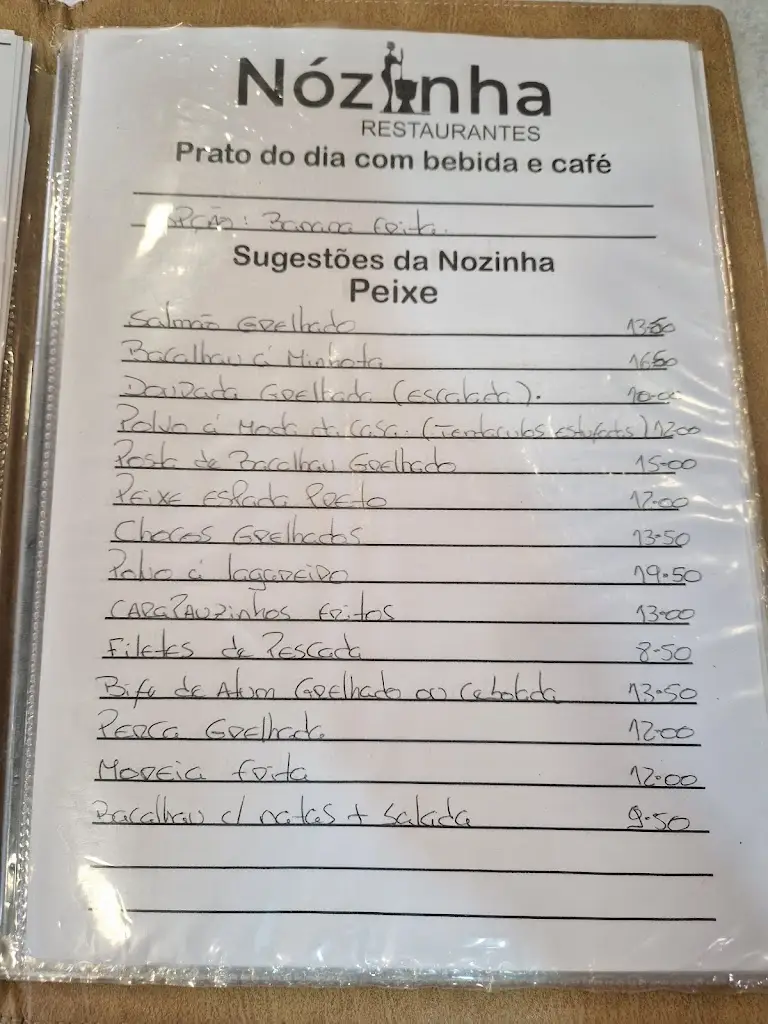 Nózinha
RESTAURANTES
Prato do dia com bebida e café
opção: Banana frita.
Sugestões da Nozinha
Peixe
Salmão Grelhado 13.50
Bacalhau á Minhota 16.50
Dourada Grelhada (escalada). 10.00
Polvo á Moda da Casa. (Tentaculos estufados) 12.00
Posta de Bacalhau Grelhado 15.00
Peixe espada Preto 12.00
Chocos Grelhados 13.50
Polvo á lagareiro 19.50
CARAPAuzinhos fritos 13.00
Filetes de Pescada 8.50
Bife de Atum Grelhado ou Cebolada 13.50
Perca Grelhada 12.00
Moreia frita 12.00
Bacalhau c/ natas + Salada 9.50